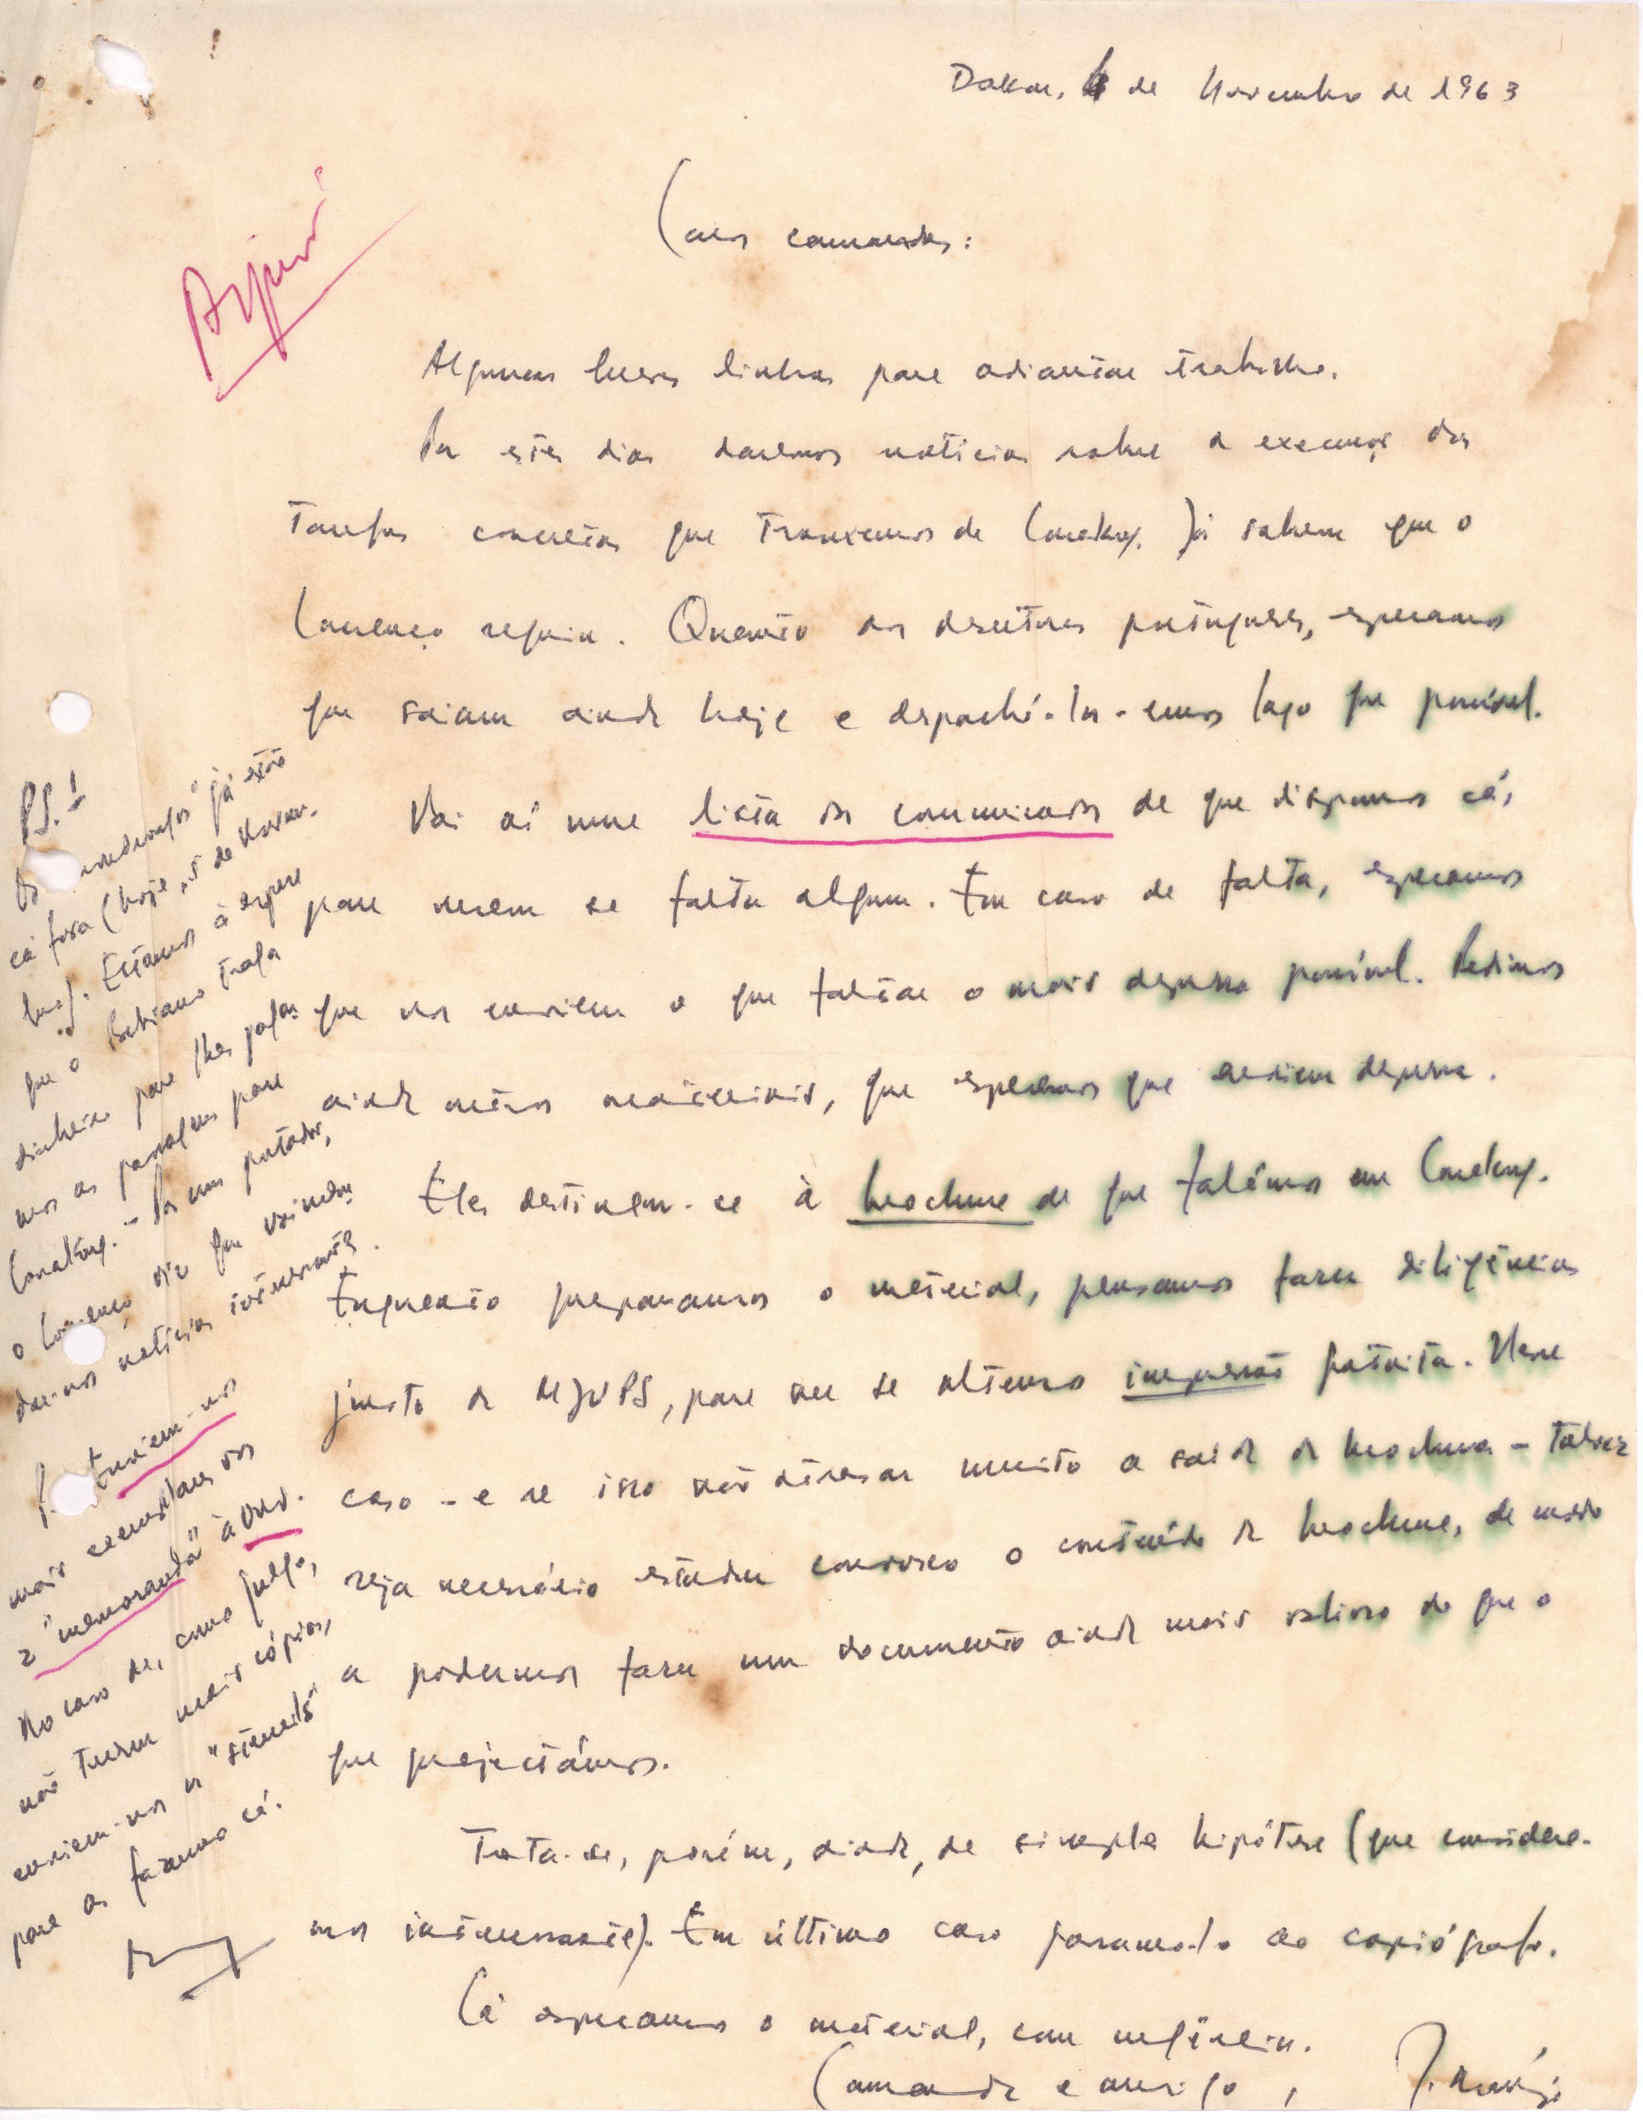 Dakar, 4 de Novembro de 1963
Caros camaradas:
Algumas breves linhas para adiantar trabalho.
Por estes dias daremos notícias sobre a execução das
tarefas concretas que trouxemos de Conakry. Já sabem que o
Lourenço seguiu. Quanto aos desertores portugueses, esperamos
que saiam ainda hoje e despachá-los-emos logo que possível.
Vai aí uma lista dos comunicados de que dispomos cá,
para verem se falta algum. Em caso de falta, esperamos
que nos enviem o que faltar o mais depressa possível. Pedimos
ainda outros materiais, que esperamos que enviem depressa.
Eles destinam-se à brochura de que falámos em Conakry.
Enquanto preparamos o material, pensamos fazer diligências
junto da UPS, para ver se obtemos impressão gratuita. Nesse
caso - e se isso não atrasar muito a saída da brochura - talvez
seja necessário estudar convosco o conteúdo da brochura, de modo
a podermos fazer um documento ainda mais valioso do que o
que projectámos.
Trata-se, porém, ainda, de simples hipótese (que considera-
mos interessante). Em último caso faremo-lo ao copiógrafo.
Cá esperamos o material, com urgência.
Camarada e amigo,
J. Araújo
PS. 1
Os já estão
cá fora (hoje, 5 de Novem-
bro). Estamos à espera
que o Betiano traga
dinheiro para lhes pagar-
mos as passagens para
Conakry. - Por um portador,
o Lourenço diz que vai man-
dar-nos notícias interessantes.
Enviem-nos
mais exemplares dos
2 "memoranda" à ONU.
No caso de, como julgo,
não terem mais cópias,
enviem-nos os "stencils"
para as fazermos cá.